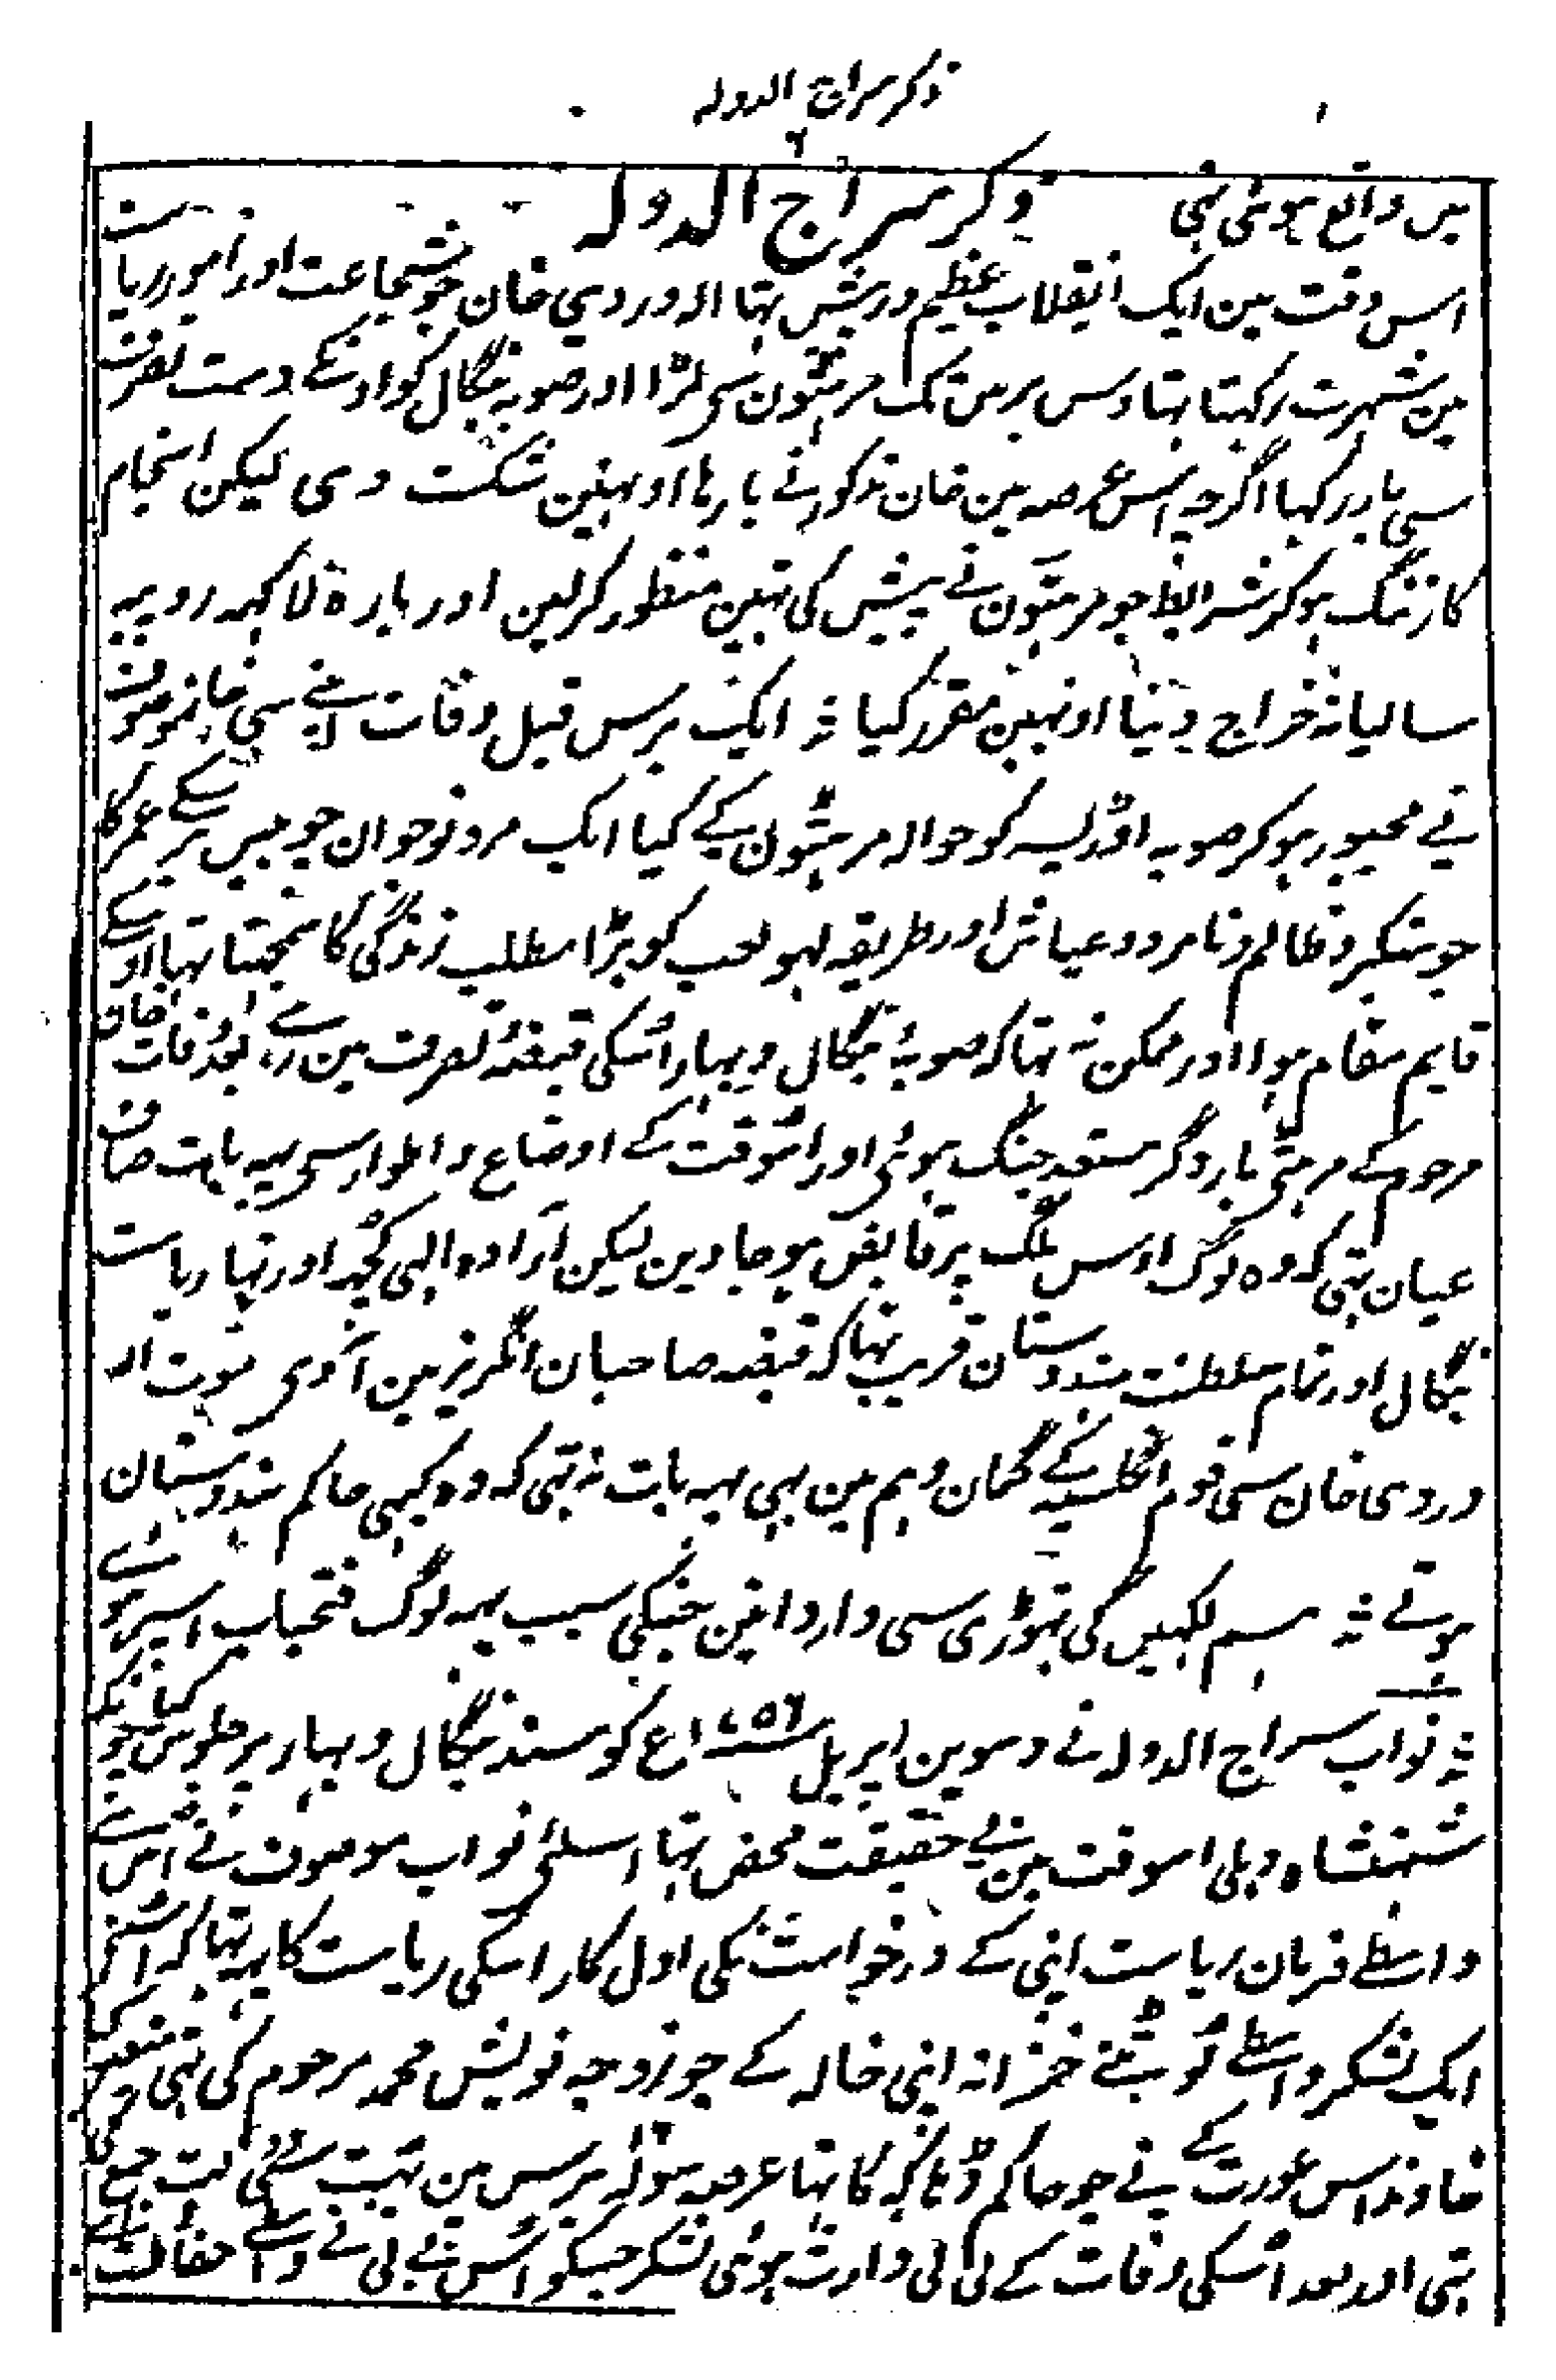 ذکر سراج الدولہ
میں واقع ہوئی تہی ذکر سراج الدولہ
اس وقت مین ایک انقلاب عظیم درپیش تہا الہ وردیی خان جو شجاعت اور امور ریاست
مین شہرت رکہتا تہا دس برس تک مرہٹون سی لڑا اور صوبہ بنگال کو اونکے دست تصرف
سی باز رکہا اگرچہ اس عرصہ مین خان مذکور نے بارہا اونہین شکست دی لیکن انجام
کار تنگ ہوکر شرایط جو مرہٹون نے پیش کی تہین منظور کرلین اور بارہ لاکہہ روپیہ
سالیانہ خراج دینا اونہین مقرر کیا ؞ ایک برس قبل وفات اپنے سی خانموصوف
نے مجبور ہوکر صوبہ اوڈیسہ کو حوالہ مرہٹون کے کیا ایک مرد نوجوان چوبیس برسکے عمر کا
جو متکبر و ظالم و نامرد و عیاش اور طریقہ لہو لعب کو بڑا مطلب زندگی کا سمجہتا تہا اوسکے
قایم مقام ہوا اور ممکن نہ تہا کہ صوبۂ بنگال و بہار اسکی قبضۂ تصرف مین رہے بعد وفات خان
مرحوم کے مرہٹی بار دگر مستعد جنگ ہوئی اور اسوقت کے اوضاع و اطوار سی یہہ بات صاف
عیان تہی کہ وہ لوگ اوس ملک پر قابض ہوجاوین لیکن ارادہ الہی کچہہ اور تہا ریاست
بنگال اور تمام سلطنت ہندوستان قریب تہا کہ قبضہ صاحبان انگریز مین آوی موت الہ
وردی خان سی قوم انگلسیہ کے گمان وہم مین بہی یہہ بات نہ تہی کہ وہ کبہی حاکم ہندوستان
ہوتے ؞ ہم لکہیں گی تہوڑی سی وارداتین جنکی سبب یہہ لوگ فتحیاب اسپر ہوے
؞ نواب سراج الدولہ نے دسوین اپریل ۱۷۵۶ع کو مسند بنگال و بہار پر جلوس کیا چونکہ
شہنشاہ دہلی اسوقت مین بے حقیقت محض تہا اسلئی نواب موصوف نے اس سے
واسطے فرمان ریاست اپنی کے درخواست نکی اول کار اسکی ریاست کا یہہ تہا کہ اسنے
ایک لشکر واسطے لوٹنے خزانہ اپنی خالہ کے جو زوجہ نوایش محمد مرحوم کی تہی متعین کی
خاوند اس عورت کے نے جو حاکم ڈہاکہ کا تہا عرصہ سولہ برس مین بہت سی دولت جمع کی
تہی اور بعد اسکی وفات کے بی بی وارث ہوئی لشکر جسکو اس بی بی نے واسطے حفاظت